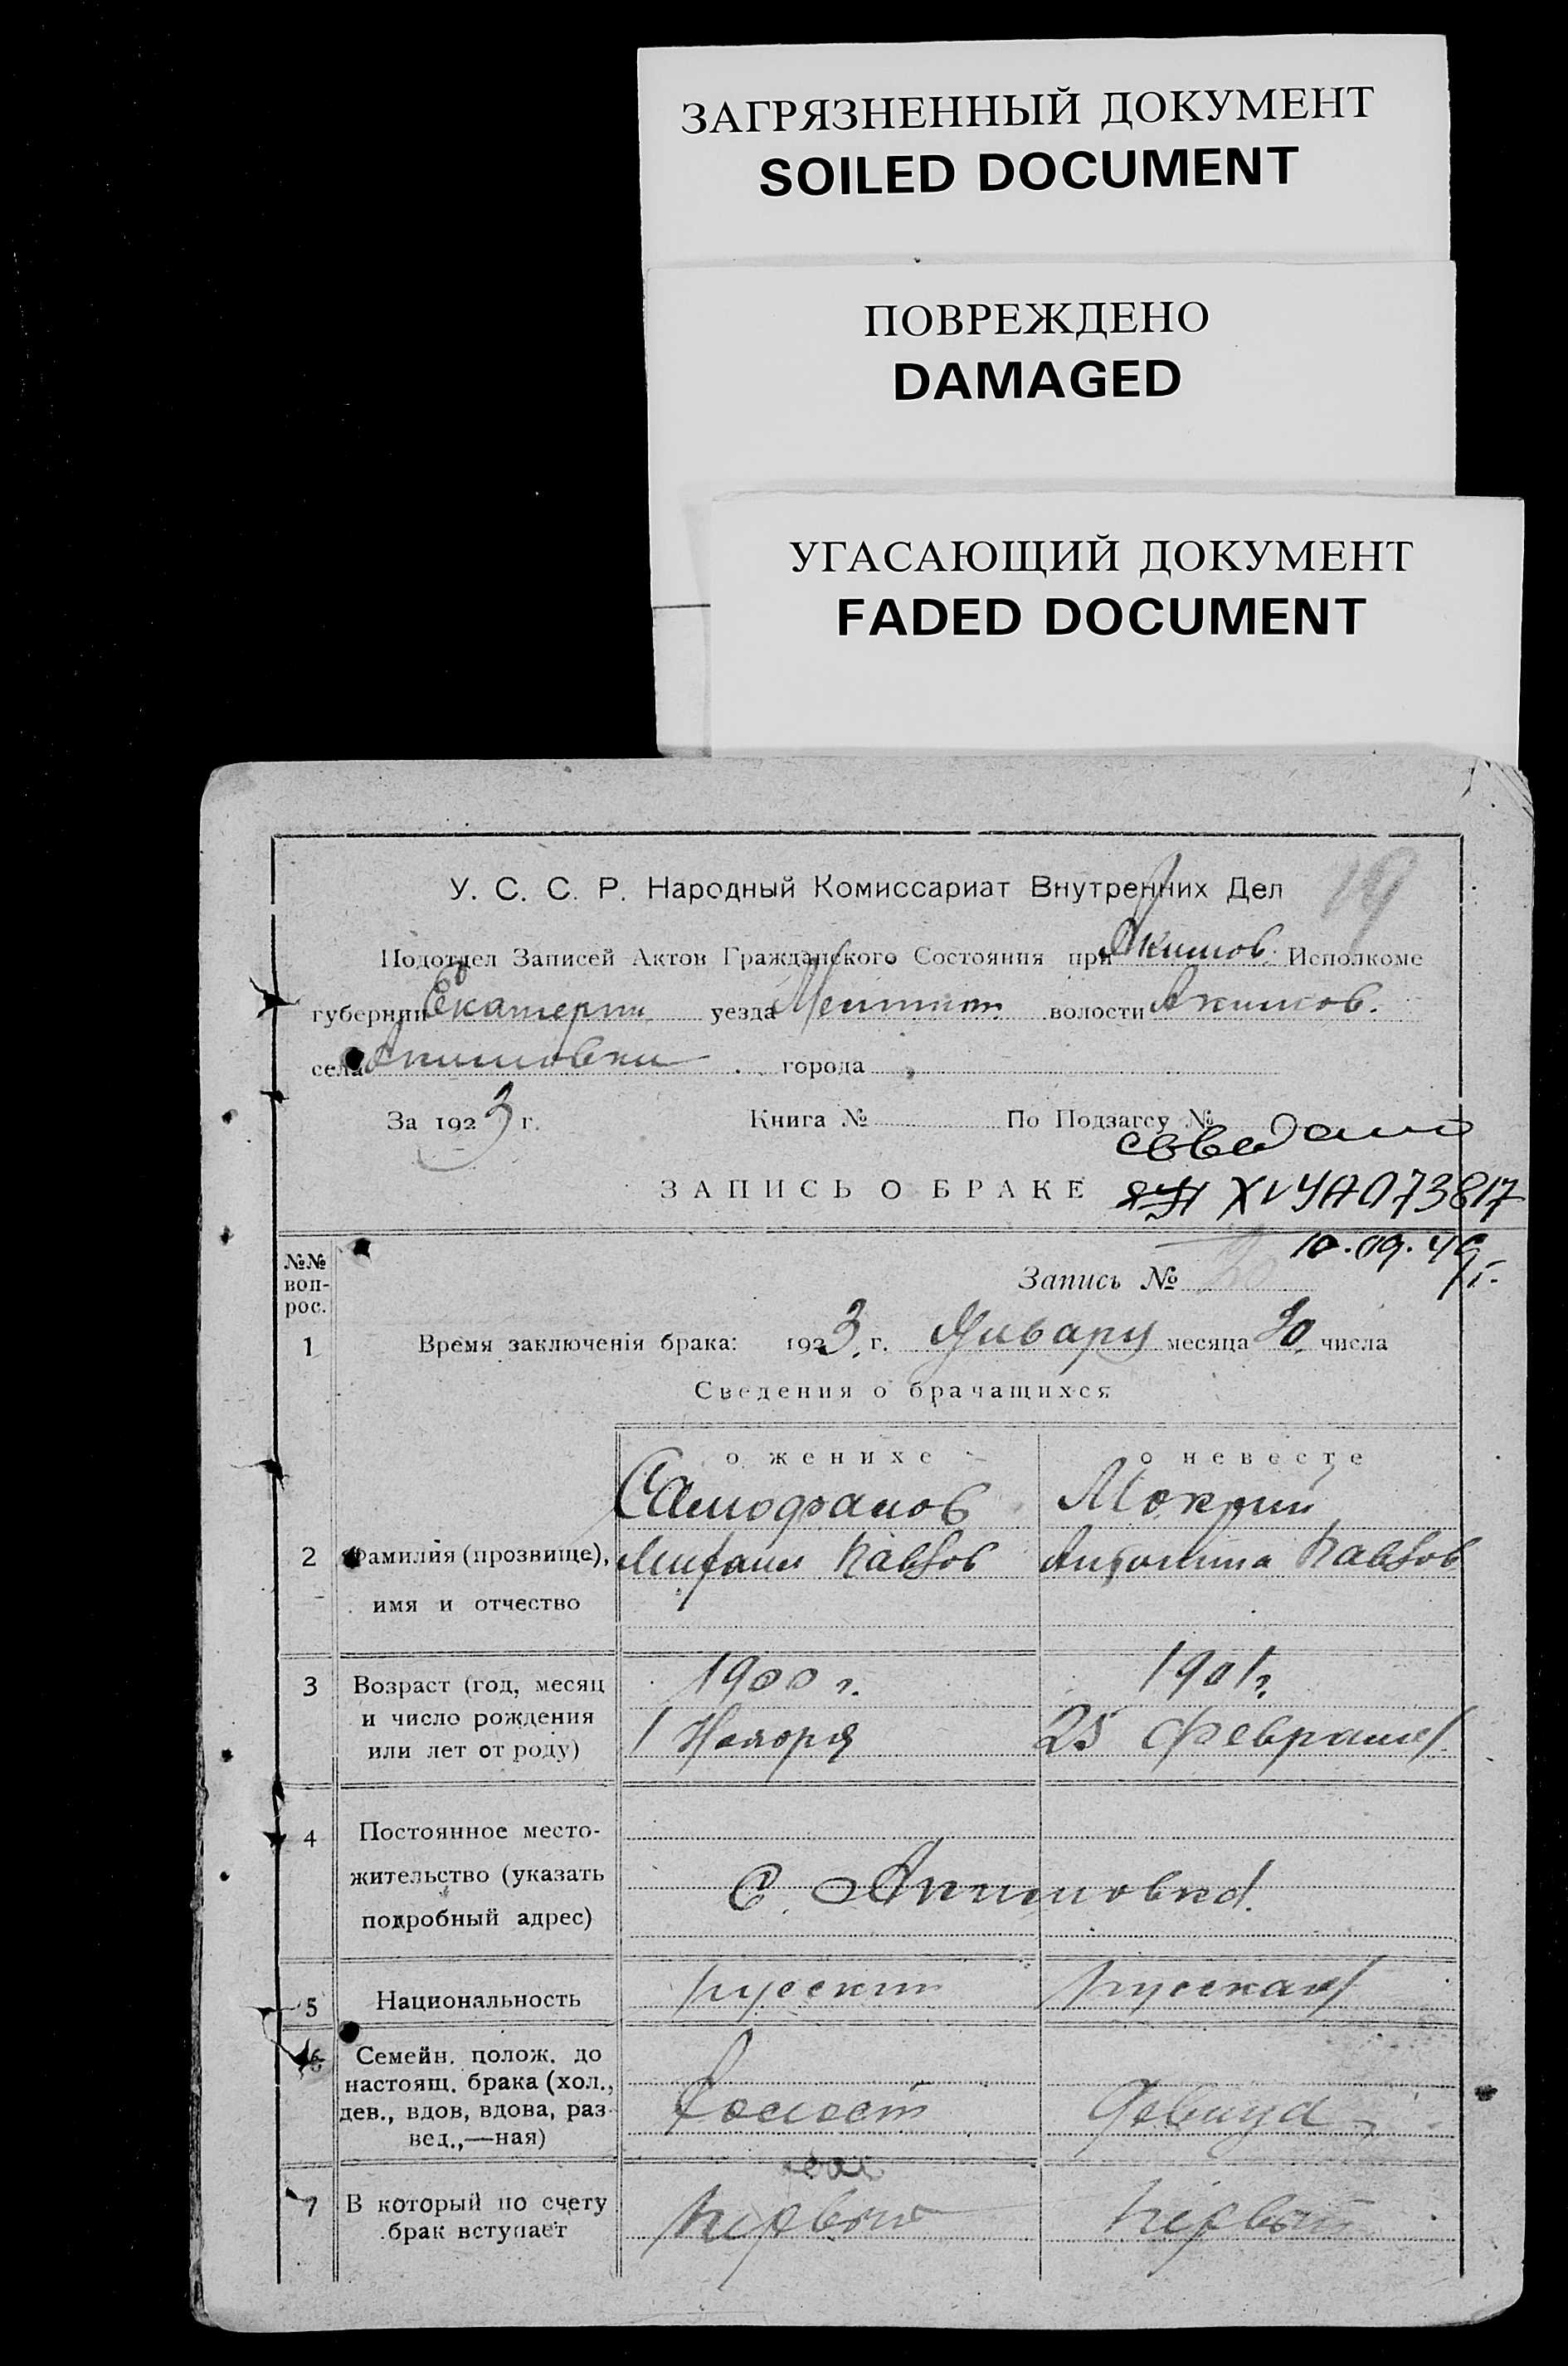 ЗАГРЯЗНЕННЫЙ ДОКУМЕНТ
SOILED DOCUMENT
ПОВРЕЖДЕНО
DAMAGED
УГАСАЮЩИЙ ДОКУМЕНТ
FADED DOCUMENT
19
У. С. С. Р. Народный Комиссариат Внутренних Дел
Подотдел Записей Актов Гражданского Состояния при Акимов. Исполкоме
губернии Екатерин. уезда Мелитоп. волости Акимов.
села Акимовки города
За 1923 г. Книга № По Подзагсу №
ЗАПИСЬ О БРАКЕ XVУА073817
10.09.49
Запись №
№№ вопрос.
1 Время заключенія брака: 1923 г. Январу месяца 30 числа
Сведения о брачащихся
о женихе о невесте
Самофалов
2 Фамилия (прозвище), Павлов Антонина Павлов
имя и отчество
3 Возраст (год, месяц 1900 г. 1901 г.
и число рождения 1 Ноября 25 Февраля
или лет от роду)
4 Постоянное место-
жительство (указать С. Акимовка.
подробный адрес)
5 Национальность русский русская
6 Семейн. полож. до
настоящ. брака (хол.,
дев., вдов, вдова, раз- холост девица
вед.,—ная)
7 В который по счету первый первый
брак вступает